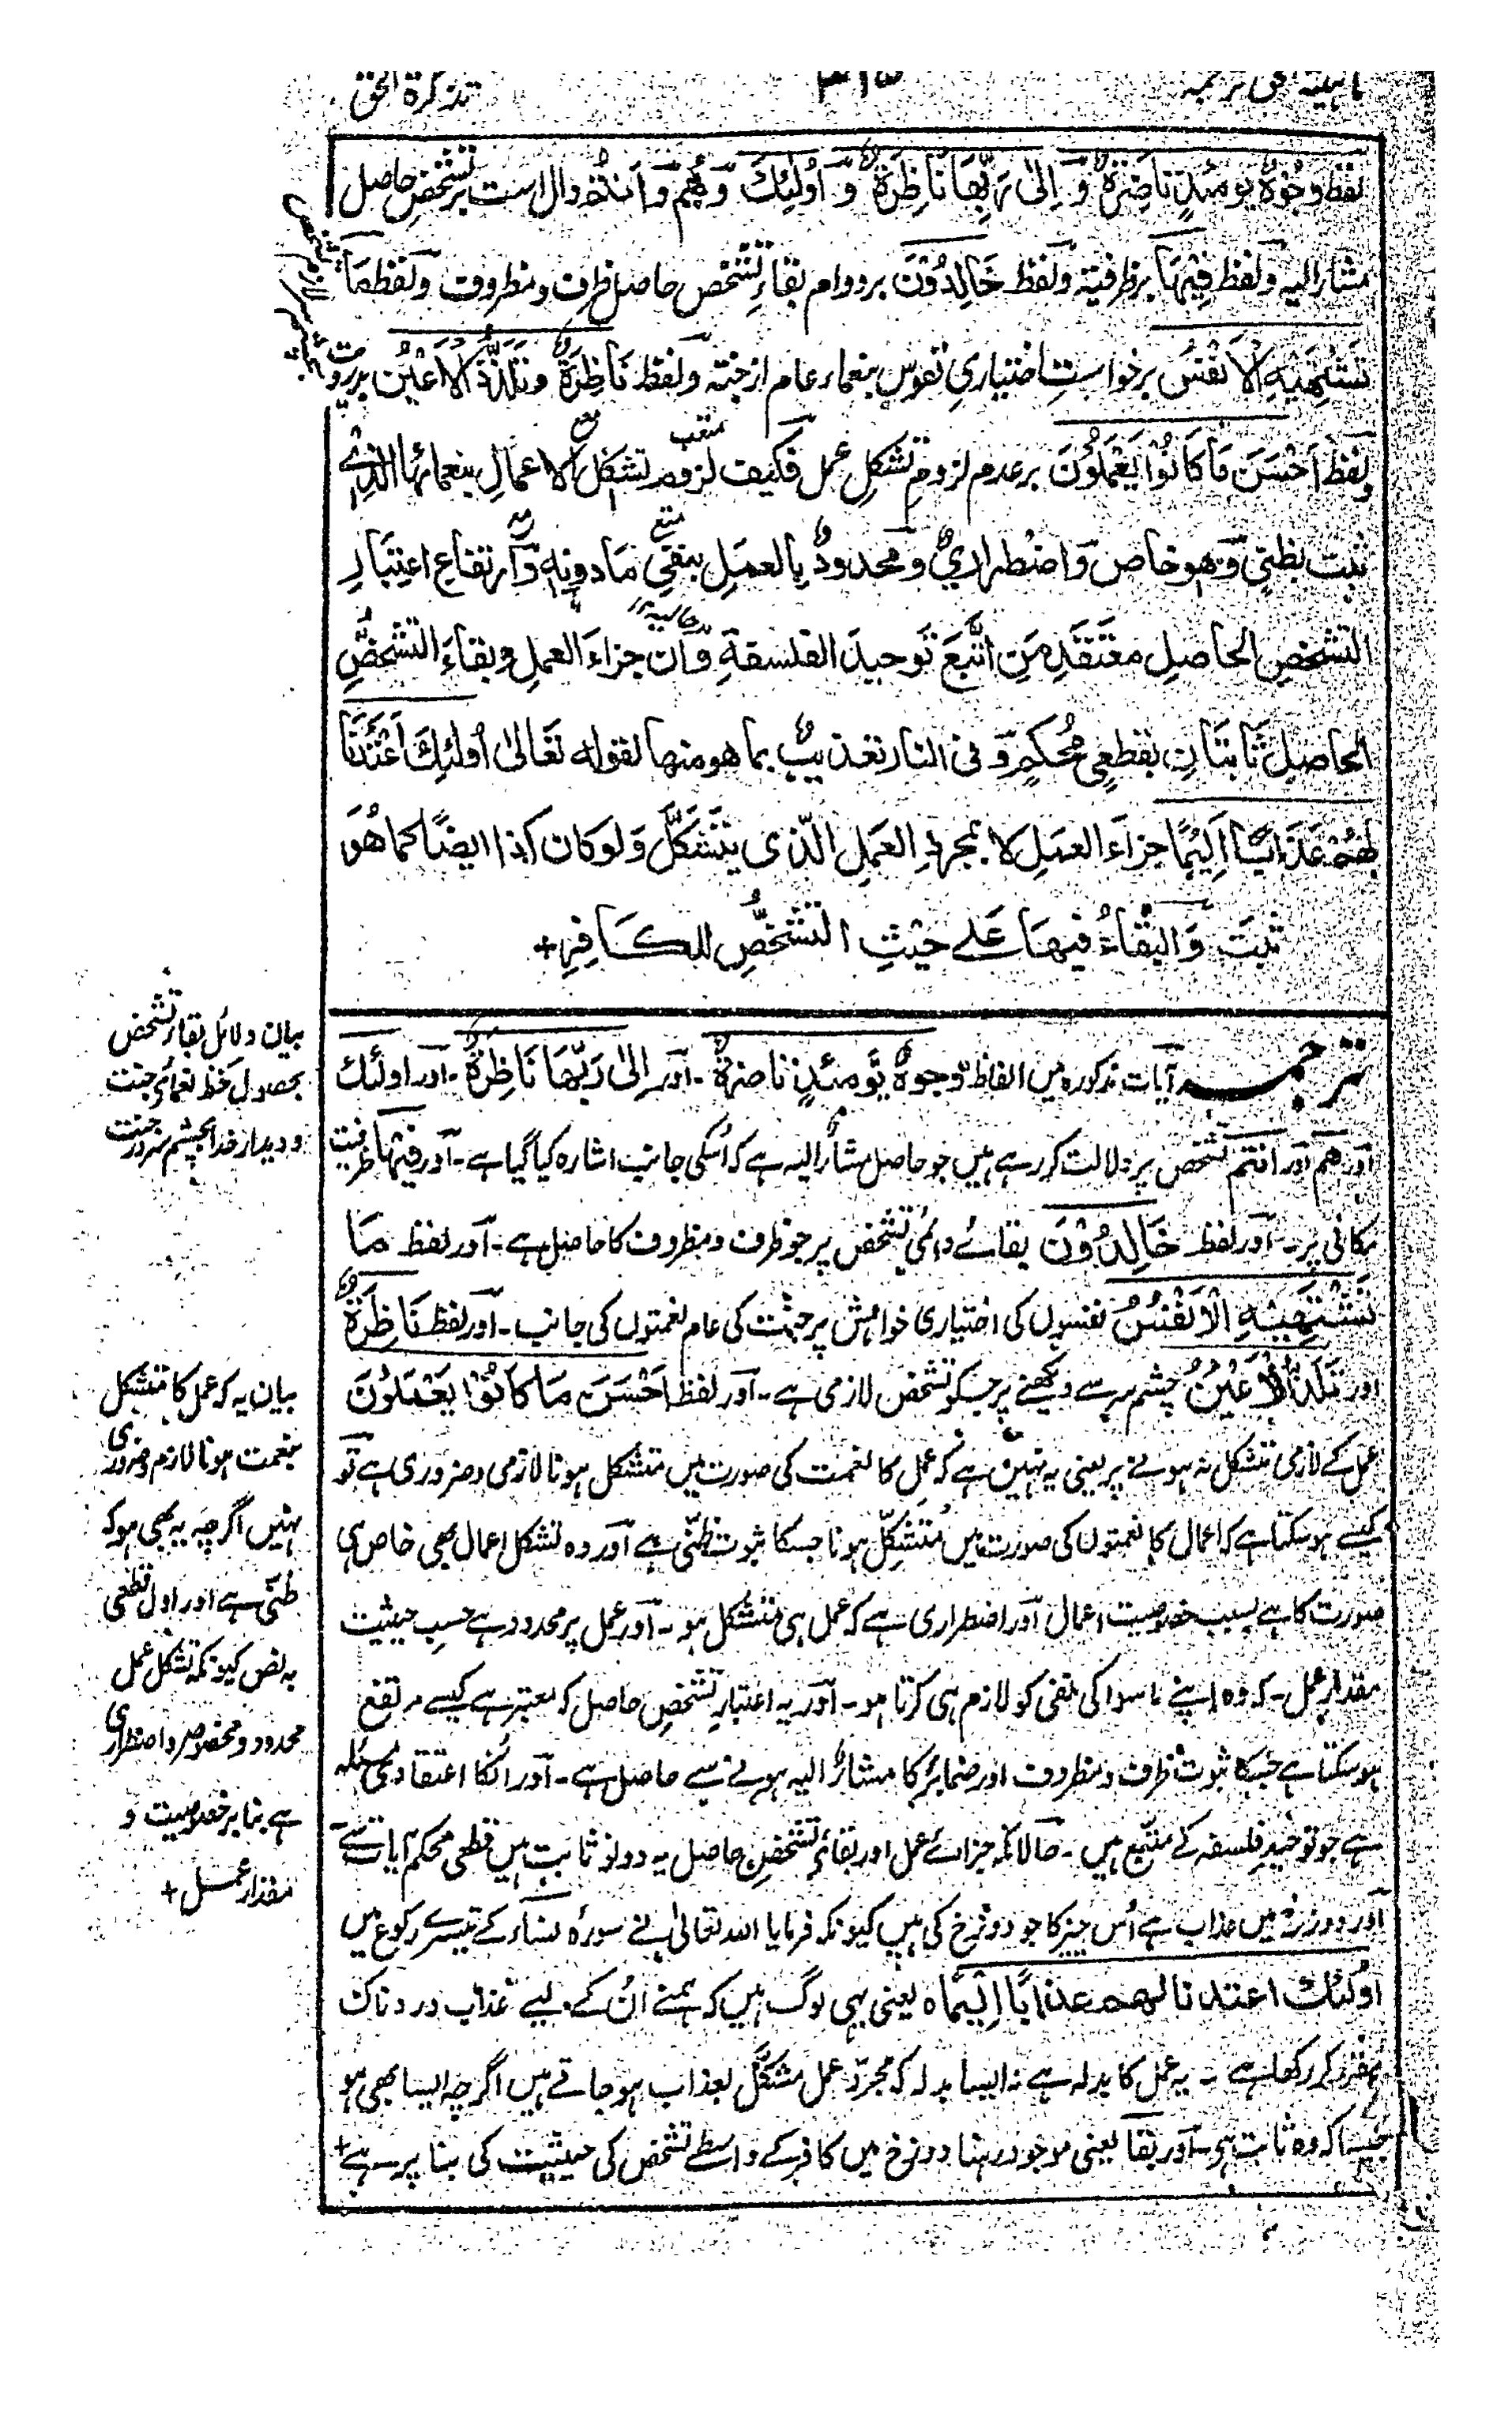 تذکرة الحق
لفظ وجوهٌ یومئذٍ ناضرةٌ و اِلیٰ ربِّها ناظرةٌ و اُولٰئِکَ و هُم و انتم دال است بر تشخصِ حاصل
مشارٌ الیه و لفظ فِیْهَا بر ظرفیة و لفظ خَالِدُوْنَ بر دوام بقاءِ تشخصِ حاصل ظرف و مظروف و لفظ مَا
تَشْتَهِیْهِ الْاَنْفُسُ بر خواستِ اختیاریِ نفوس بنعماءِ عام از جنة و لفظ نَاظِرَةٌ و تَلَذُّ الْاَعْیُنُ بر رویت
و لفظ اَحْسَنَ مَا کَانُوْا یَعْمَلُوْنَ بر عدم لزومِ تشکلِ عمل فکیف لزوم تشکل الاعمالِ بنعمائها الذی
ثبت بظنیٍ و هو خاص و اضطراریٌ و محدودٌ بالعملِ بنفیِ مَا دونهٖ و ارتفاعِ اعتبارِ
التشخصِ الحاصلِ معتقَدِ مَنِ اتَّبَعَ تَوحیدَ الفلسفةِ و ان جزاءَ العملِ و بقاءَ التشخصِ
الحاصلِ ثابتانِ بقطعیٍ مُحکمٍ و فی النار تعذیبٌ بما هو منها لقوله تعالیٰ اُولٰئِکَ اَعْتَدْنَا
لَهُمْ عَذَابًا اَلِیْمًا جزاءَ العملِ لا بمجردِ العملِ الّذی یتشکّلُ ولو کان کذا ایضًا کما هُوَ
ثبتَ وَ البقاءُ فیها عَلیٰ حیثِ التشخُّصِ للکافرِ+
ترجمہ آیات مذکورہ میں الفاظ وجوهٌ یَّومئذٍ ناضرةٌ ۔ اور اِلیٰ رَبِّهَا نَاظِرَةٌ ۔ اور اولٰئک
اور هم اور انتم تشخص پر دلالت کر رہے ہیں جو حاصل مشارٌ الیہ ہے کہ اُسکی جانب اشارہ کیا گیا ہے ۔ اور فِیْهَا ظرفیت
مکانی پر ۔ اور لفظ خَالِدُوْنَ بقائے دائمی تشخص پر جو ظرف و مظروف کا حاصل ہے ۔ اور لفظ مَا
تَشْتَهِیْهِ الْاَنْفُسُ نفسوں کی اختیاری خواہش پر جنت کی عام نعمتوں کی جانب ۔ اور لفظ نَاظِرَةٌ
اور تَلَذُّ الْاَعْیُنُ چشم سر سے دیکھنے پر جسکو تشخص لازمی ہے ۔ اور لفظ اَحْسَنَ مَا کَانُوْا یَعْمَلُوْنَ
عمل کے لازمی متشکل نہ ہونے پر یعنی یہ نہیں ہے کہ عمل کا نعمت کی صورت میں متشکل ہونا لازمی و ضروری ہے تو
کیسے ہو سکتا ہے کہ اعمال کا نعمتوں کی صورت میں مُتشکّل ہونا جسکا ثبوت ظنّی ہے اور وہ تشکل اعمال بھی خاص ہی
صورت کا ہے بسبب خصوصیت اعمال اور اضطراری ہے کہ عمل ہی متشکل ہو ۔ اور عمل پر محدود ہے حسب حیثیت
مقدارِ عمل ۔ کہ وہ اپنے ماسوا کی نفی کو لازم ہی کرتا ہو ۔ اور یہ اعتبارِ تشخصِ حاصل کہ معتبر ہے کیسے مرتفع
ہو سکتا ہے جسکا ثبوت ظرف و مظروف اور ضمائر کا مشارٌ الیہ ہونے سے حاصل ہے ۔ اور اُنکا اعتقادی مسئلہ
ہے جو توحیدِ فلسفہ کے متبع ہیں ۔ حالانکہ جزائے عمل اور بقائے تشخصِ حاصل یہ دونو ثابت ہیں قطعی محکم آیات سے
اور دوزخ میں عذاب ہے اُس چیز کا جو دوزخ کی ہیں کیونکہ فرمایا اللہ تعالیٰ نے سورہ نساء کے تیسرے رکوع میں
اُولٰئک اعتدنا لهم عذابًا اَلِیْمًا ہ یعنی یہی لوگ ہیں کہ ہمنے اُن کے لیے عذاب دردناک
مقرر کر رکھا ہے ۔ یہ عمل کا بدلہ ہے نہ ایسا بدلہ کہ مجرّد عمل مشکّل بعذاب ہو جاتے ہیں اگرچہ ایسا بھی ہو
جیسا کہ وہ ثابت ہی ہے ۔ اور بقا یعنی موجود رہنا دوزخ میں کافر کے واسطے تشخص کی حیثیت کی بنا پر ہے+
بیان دلائل بقاء تشخص
بحصول حظ نعمائے جنت
و دیدار خدا بچشم سر در جنت
بیان یہ کہ عمل کا متشکل
بنعمت ہونا لازم و ضروری
نہیں اگرچہ یہ بھی ہو کہ
ظنّی ہے اور اول قطعی
بہ نص کیونکہ تشکل عمل
محدود و مخصوص و اضطراری
ہے بنا بر خصوصیت و
مقدار عمل+